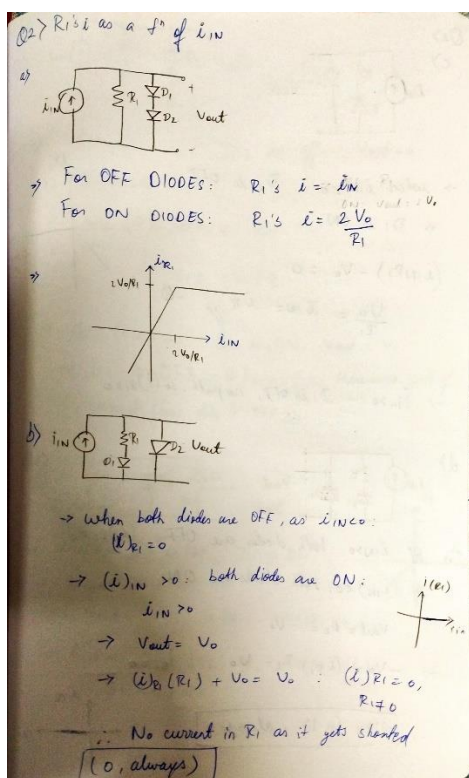 Q2> R1's i as a fⁿ of iIN
a>
iIN
R1
D1
D2
+
Vout
-
=> For OFF DIODES: R1's i = iIN
For ON DIODES: R1's i = 2V0/R1
=>
iR1
2V0/R1
iIN
2V0/R1
b>
iIN
R1
D1
D2
Vout
-> When both diodes are OFF, as iIN<0:
(i)R1 = 0
-> (i)IN >0: both diodes are ON:
iIN >0
I(R1)
iin
-> Vout = V0
-> (i)R1 (R1) + V0 = V0 : (i)R1 = 0,
R1≠0
∴ No current in R1 as it gets shorted
(0, always)